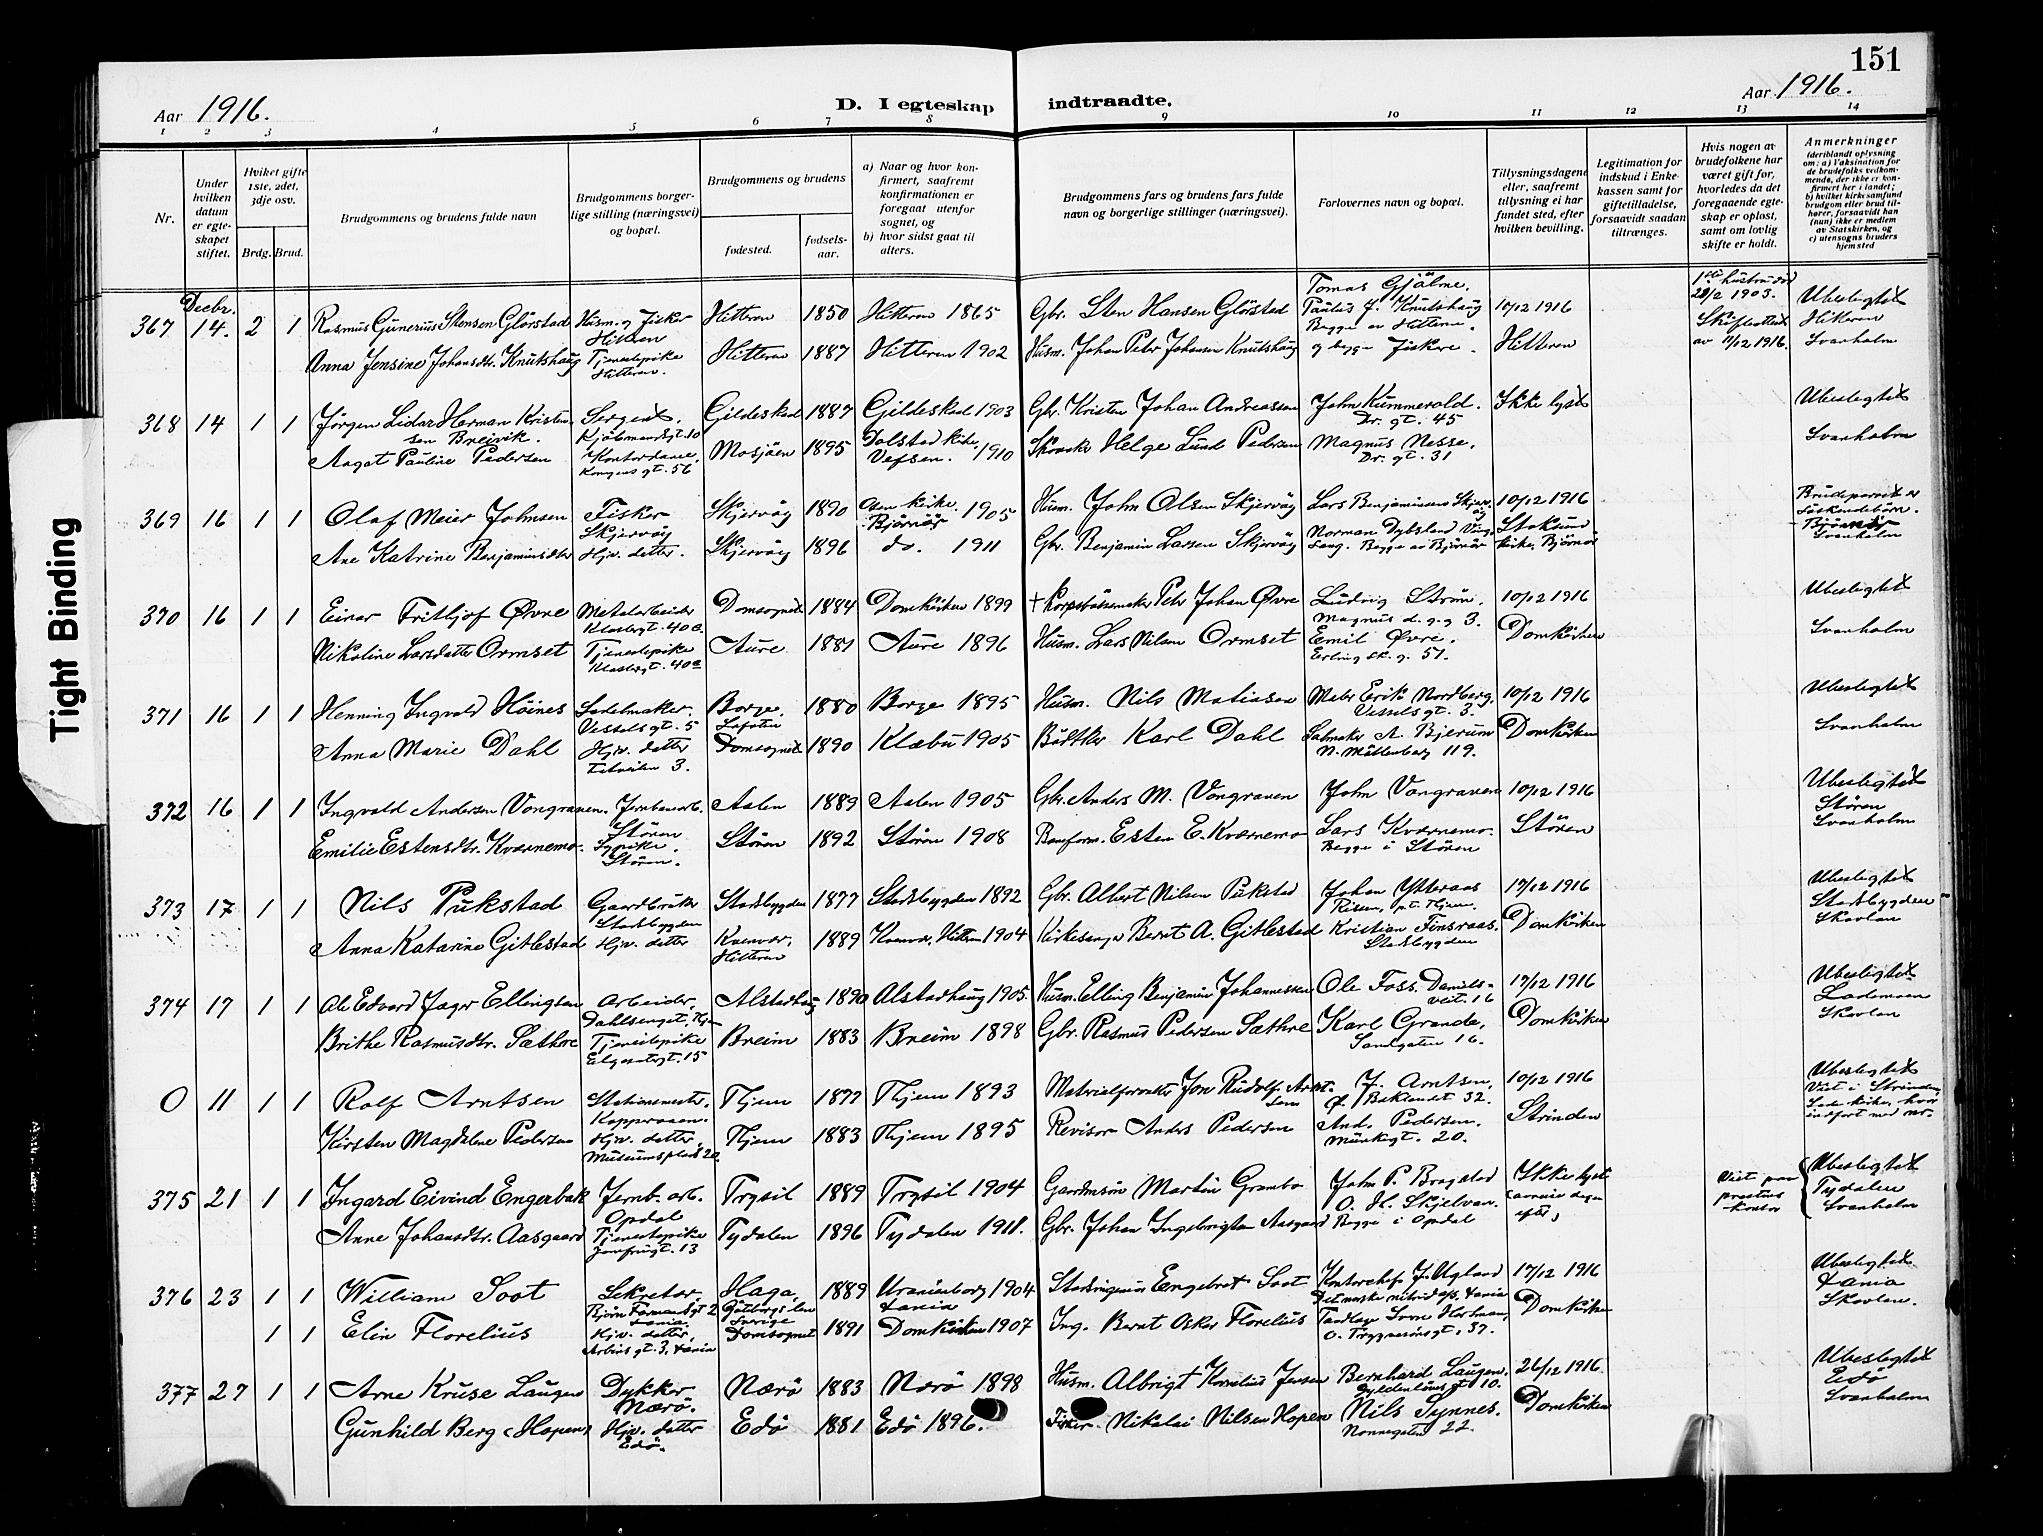 151
Aar 1916.
D. I egteskap indtraadte.
Aar 1916.
1 2 3 4 5 6 7 8 9 10 11 12 13 14
Nr.
Under hvilken datum er egteskapet stiftet.
Hvilket gifte 1ste, 2det, 3dje osv.
Brdg. Brud.
Brudgommens og brudens fulde navn
Brudgommens borgerlige stilling (næringsvei) og bopæl.
Brudgommens og brudens
fødested.
fødselsaar.
a) Naar og hvor konfirmert, saafremt konfirmationen er foregaat utenfor sognet, og
b) hvor sidst gaat til alters.
Brudgommens fars og brudens fars fulde navn og borgerlige stillinger (næringsvei).
Forlovernes navn og bopæl.
Tillysningsdagene eller, saafremt tillysning ei har fundet sted, efter hvilken bevilling.
Legitimation for indskud i Enkekassen samt for giftetilladelse, forsaavidt saadan tiltrænges.
Hvis nogen av brudefolkene har været gift for, hvorledes da det foregaaende egteskap er opløst, samt om lovlig skifte er holdt.
Anmerkninger (deriblandt oplysning om: a) Vaksination for de brudefolks vedkommende, der ikke er konfirmert her i landet; b) hvilket kirkesamfund brudgom eller brud tilhører, forsaavidt han (hun) ikke er medlem av Statskirken, og c) utensogns bruders hjemsted
Decbr.
367 14. 2 1 Rasmus Gunerius Stensen Glørstad Husm. og Fisker Hitteren Hitteren 1850 Hitteren 1865 Gbr. Sten Hansen Glørstad Tomas Gjälme, Paulus J. Knutshaug 10/12 1916 Ubeslegtet
Anna Jensine Johansdtr. Knutshaug Tjenestepike Hitteren. Hitteren 1887 Hitteren 1902 Husm. Johan Peter Johansen Knutshaug Begge av Hitteren. og begge Fiskere. Hitteren Skifteattest av 11/12 1916. Hitteren Svanholm
368 14 1 1 Jørgen Lidar Herman Kristensen Breivik. Sergent, Gildeskaal 1887 Gildeskaal 1903 Gbr. Kristen Johan Andreassen John Kummervold. Dr. gt. 45 Ikke lyst Ubeslegtet
Aagot Pauline Pedersen Kontordame, Kongens gt. 56 Mosjöen 1895 Dolstad kirke, Vefsen. 1910 Helge Lund Pedersen Magnus Nesse, Dr. gt. 31 Svanholm
369 16 1 1 Olaf Meier Johnsen Fisker Skjervöy Skjervöy 1890 Osen kirke. Björnör 1905 Husm. John Olsen Skjervöy Lars Benjaminsen Skjervöy 10/12 1916 Brudeparret er Søskendebörn.
Ane Katrine Benjaminsdtr Hjv. datter. Skjervöy 1896 do. 1911 Gbr. Benjamin Larsen Skjervöy Norman Dybsland Begge av Björnör Stoksund kirke, Björnör Björnör Svanholm
370 16 1 1 Einar Frithjof Øvre Metalarbeider Domsognet 1884 Domkirken 1899 + Peter Johan Øvre Ludvig Ström, Magnus d. g. g 3. 10/12 1916 Ubeslegtet
Nikoline Larsdatter Ormset Tjenestepike Aure 1881 Aure 1896 Husm. Lars Nilsen Ormset Emil Øvre. Erling sk. g. 51. Domkirken Svanholm
371 16 1 1 Henning Ingvald Höines Sadelmaker. Vessels gt. 5 Borge, Lofoten 1880 Borge 1895 Husm. Nils Matiasen Maler Erik Nordberg. Vessels gt. 3. 10/12 1916 Ubeslegtet
Anna Marie Dahl Hjv. datter 3. Domsognet 1890 Klæbu 1905 Bödker Karl Dahl Salmaker A. Bjerum N. Möllenberg 119. Domkirken Svanholm
372 16 1 1 Ingvald Andersen Vongraven. Jernbanearb. Støren Aalen 1889 Aalen 1905 Gbr. Anders M. Vongraven John Vongraven 10/12 1916 Ubeslegtet
Emilie Estensdtr. Kværnemo. Sypike. Støren. Støren 1892 Støren 1908 Baneform. Esten E. Kværnemo Lars Kværnemo. Begge i Støren Støren Støren Svanholm
373 17 1 1 Nils Pukstad Gaardbruker Stadsbygden Stadsbygden 1877 Stadsbygden 1892 Gbr. Albert Nilsen Pukstad Johan Ytteraas Risen, p.t. Thjem. 17/12 1916 Ubeslegtet
Anna Katarina Gitlestad Hjv. datter Kvenvær, Hitteren 1889 Kvenvær, Hitteren 1904 Kirkesanger Bernt A. Gitlestad Kristian Finsraas. Stadsbygden Domkirken Stadsbygden Skavlan
374 17 1 1 Ole Edvard Jager Ellingsen Arbeider, Alstadhaug 1890 Alstadhaug 1905. Husm. Elling Benjamin Johannessen Ole Foss. Danielsveit. 16 17/12 1916 Ubeslegtet
Brithe Rasmusdtr. Sæthre Tjenestepike Elgesetergt. 15 Breim 1883 Breim 1898 Gbr. Rasmus Pedersen Sæthre Karl Grande, Sandgaten 16. Domkirken Lademoen Skavlan
0 11 1 1 Rolf Arntsen Stationsmester. Kopperaaen. Thjem 1877 Thjem 1893 Materialforvalter Jon Rudolf Arntsen J. Arntsen, Ø. Baklandet 32. 10/12 1916 Ubeslegtet
Kirsten Magdalene Pedersen Hjv. datter, Museumsplads 2a. Thjem 1883 Thjem 1895 Revisor Anders Pedersen And. Pedersen. Munkegt. 20. Strinden Viet i Strinden, Lade kirke, hvor indført med nr.
375 21 1 1 Ingard Eivind Engerbak Jernb. arb. Opdal Trysil 1889 Trysil 1904 Gaardmann Martin Grambo John P. Bragstad Ikke lyst Viet paa prestens kontor Ubeslegtet
Anne Johansdtr. Aasgaard Tjenestepike Jomfrugt. 13 Tydalen 1896 Tydalen 1911. Gbr. Johan Ingebrigtsen Aasgaard O. H. Skjelvan. Begge i Opdal Tydalen Svanholm
376 23 1 1 William Soot Sekretær, Haga, Göteborgs len Sverige 1889 Uranienborg 1904 Xania Stadsingeniør Engebret Soot Kontorchef J. Ugland 17/12 1916 Ubeslegtet
1 1 Elin Florelius Hjv. datter, Arbins gt. 3, Xania Domsognet 1891 Domkirken 1907 Ing. Bernt Osker Florelius Tandlæge Sven Hartman, O. Tryggvasøns gt. 37. Domkirken Xania Skavlan.
377 27 1 1 Arne Kruse Laugen Dykker Nærö. Nærö 1883 Nærö 1898 Husm. Albrigt Kornelius Jensen Bernhard Laugen, Gyldenløvs gt 10. 26/12 1916. Ubeslegtet
Gunhild Berg (Hopen) Hjv. datter Edö. Edö 1881 Edö 1896. Fisker. Nikolai Nilsen Hopen Nils Synnes. Nonnegaten 22. Domkirken Edö Svanholm
Tight Binding